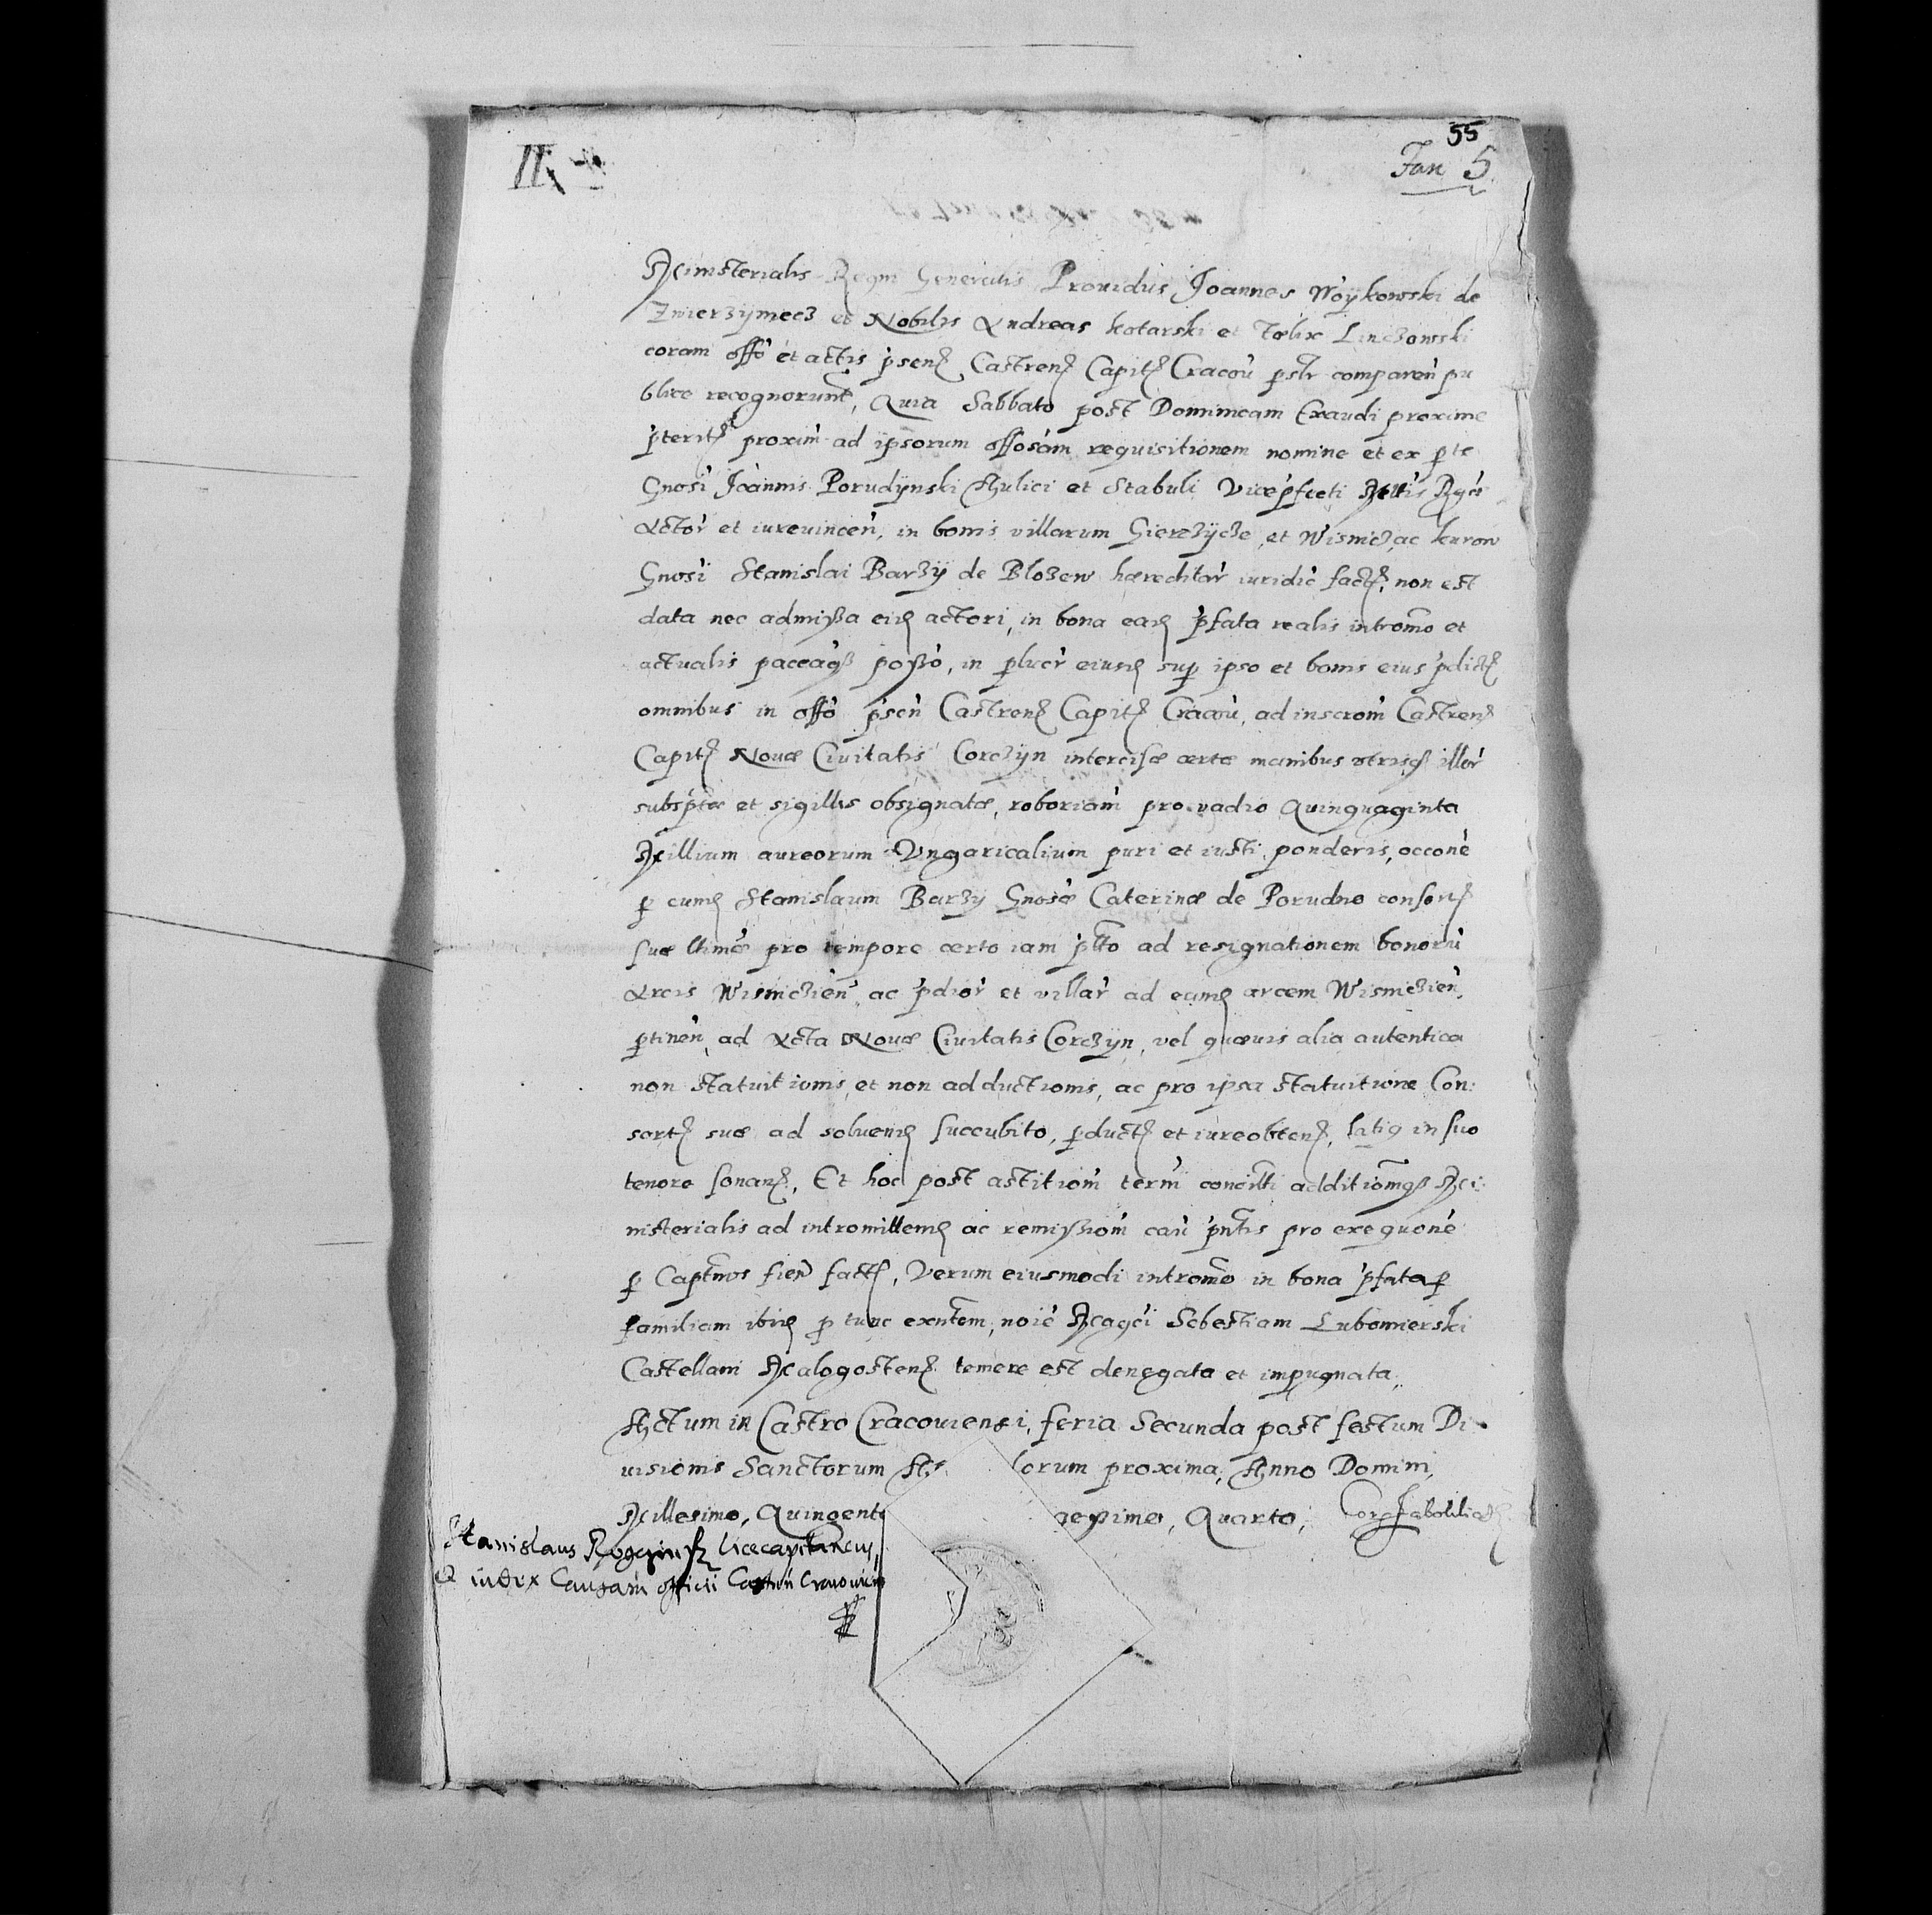 II
55
Fan 5.
Ministerialis Regni Generalis Prouidus Joannes Woÿkowski de
Zwierzÿmecz et Nobiles Andreas Kotarski et Fœlix Linczowski
coram offõ et actis p̀senʒ Castrenʒ Capitʒ Cracoũ psłr comparen̄ pu
blice recognorunt, Quia Sabbato post Dominicam Exaudi proxime
p̀teritʒ proxim̄ ad ipsorum offosam̀ requisitionem nomine et ex pte
Gnosi Joannis Porudÿnski Aulici et Stabuli Vicep̀fecti
Actor̀ et iureuincen̄, in bonis villarum Gierczÿcze et Wisnicz, ac Kurow
Gnosi Stanislai Barzÿ de Blozew hæreditar̀ iuridic̀ factʒ, non est
data nec admissa eidʒ actori, in bona eadʒ p̀fata realis introm̃o et
actualis paccaqʒ possò, in plucr̀ eiusdʒ sup ipso et bonis eius p̀dictʒ
omnibus in offò p̀sen̄ Castrenʒ Capitʒ Cracoù, ad inscrom̀ Castrenʒ
Capitʒ Nouæ Ciuitatis Corczÿn intercisæ certæ manibus vtrisqʒ illor̀
subsp̀tæ et sigillis obsignatæ, roboriom̀ pro vadio Quinquaginta
Millium aureorum Vngaricalium puri et iusti ponderis, occonè
p eumdʒ Stanislaum Barzy Gnosæ Caterinæ de Porudno consortʒ
suæ ltimæ pro tempore certo iam p̀tto ad resignationem bonorũ
Arcis Wisniczien̄ ac p̀dior̀ et villar̀ ad eamdʒ arcem Wisniczien̄
ptinen̄, ad Acta Nouæ Ciuitatis Corczÿn, vel quæuis alia autentica
non statuitionis, et non adductionis, ac pro ipsa statuitione Con:
sortʒ suæ ad soluendʒ succubito, pductʒ et iureobtenʒ, latiq in suo
tenore sonanʒ, Et hoc post astitiom̀ term̀ concilti additiomqʒ Mi:
nisterialis ad intromittemdʒ ac remissiom̀ cau p̀ntis pro exequonè
p Captnos fieri factʒ, Verum eiusmodi introm̃o in bona p̀fata p
familiam ibidʒ p tunc exntem, noiè Magci Sebestiani Lubomierski
Castellani Malogostenʒ temere est denegata et impugnata.
Actum in Castro Cracouiensi, feria Secunda post festum Di
uisionis Sanctorum Ap lorum proxima, Anno Domini
Millesimo, Quingent gesimo, Quarto,
Stanislaus vicecapitaneus,
& iudex Causarũ officii Castrñ Cracouien